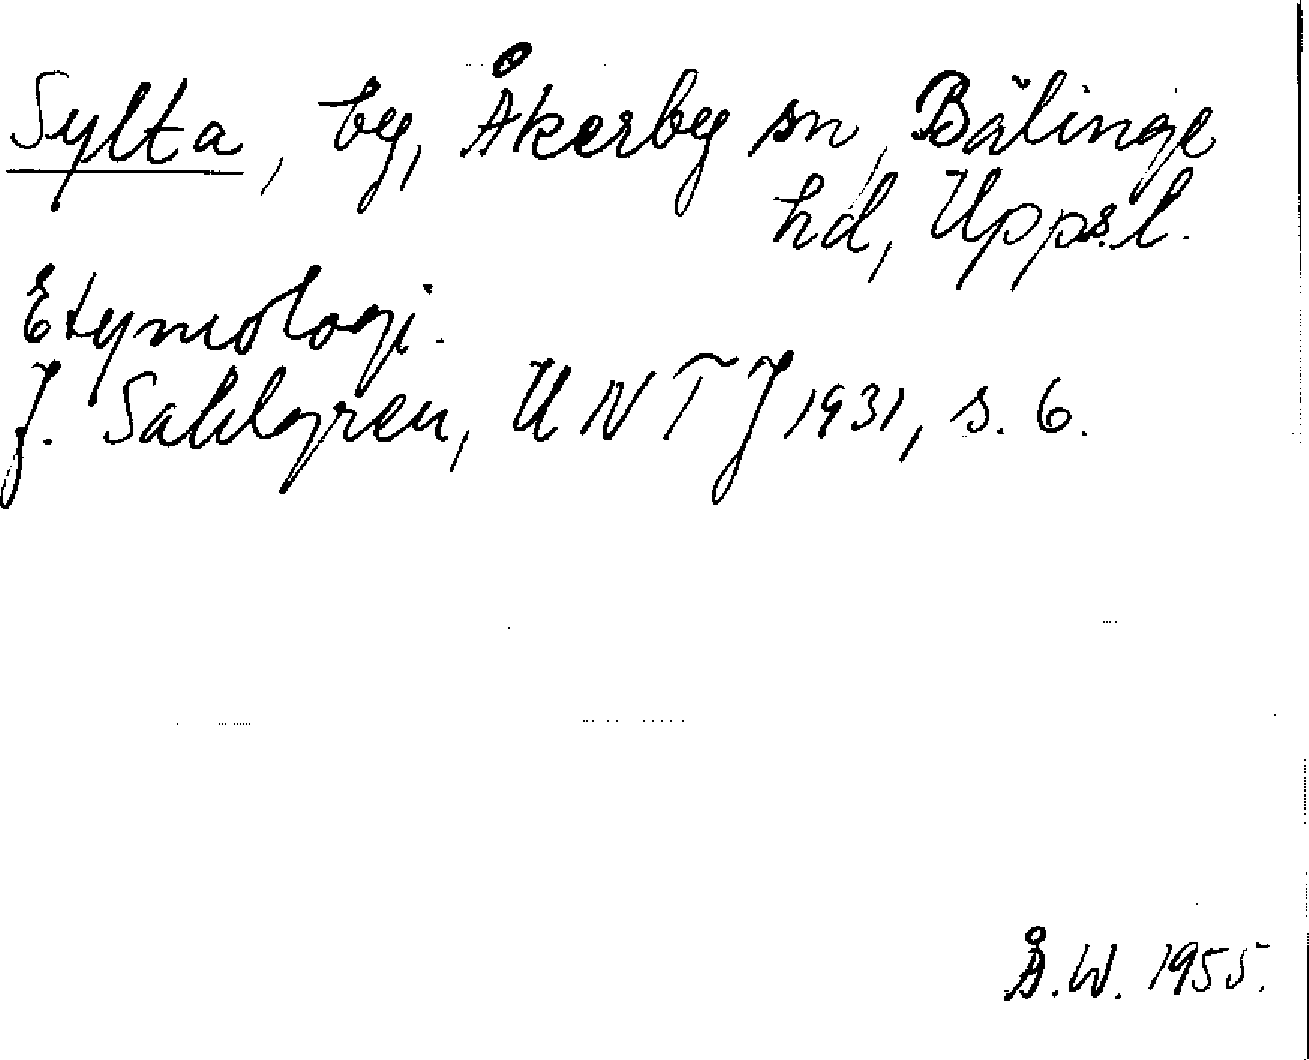 Sylta, by, Åkerby sn, Bälinge
hd, Uppsl.
Etymologi.
J. Sahlgren, UNTJ 1931, s. 6.
Å.W. 1955.